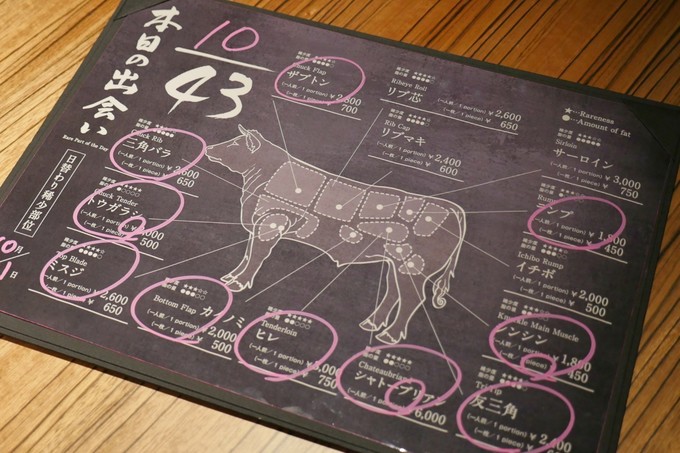 本日の出会い
Rare Part of the Day
日替わり稀少部位
10月
1日
10
43
★…Rareness
●…Amount of fat
Chuck Flap
ザブトン
(一人前/1 portion) ¥2,800
700
Ribeye Roll
リブ芯
(一人前/1 portion) ¥2,600
(一枚/1 piece) ¥650
Rib Cap
リブマキ
(一人前/1 portion) ¥2,400
(一枚/1 piece) ¥600
Sirloin
サーロイン
(一人前/1 portion) ¥3,000
(一枚/1 piece) ¥750
Chuck Rib
三角バラ
(一人前/1 portion) ¥2,600
(一枚/1 piece) ¥650
Chuck Tender
トウガラシ
(一人前/1 portion)
(一枚/1 piece) 500
Top Blade
ミスジ
(一人前/1 portion) ¥2,600
(一枚/1 piece) ¥650
Bottom Flap カイノミ
(一人前/1 portion) ¥2,000
(一枚/1 piece) ¥500
Tenderloin
ヒレ
(一人前/1 portion) ¥3,000
(一枚/1 piece) ¥750
Chateaubriand
シャトーブリアン
(一人前/1 portion) 6,000
¥1,800
(一枚/1 piece) ¥450
Ichibo Rump
イチボ
(一人前/1 portion) ¥2,000
(一枚/1 piece) ¥500
Knuckle Main Muscle
シンシン
(一人前/1 portion) ¥1,800
450
Tri Tip
友三角
(一人前/1 portion)
(一枚/1 piece) ¥